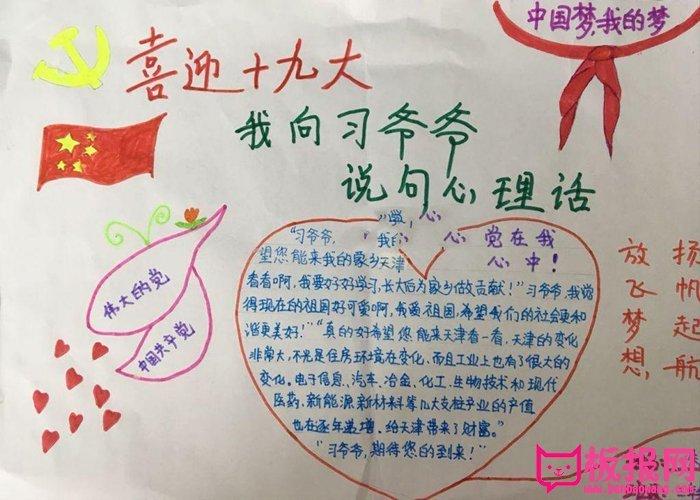 中国梦,我的梦
喜迎十九大
我向习爷爷
说句心理话
学,心
我们心党在我
心中!
"习爷爷,
望您能来我的家乡天津
看看啊,我要好好学习,长大后为家乡做贡献!"习爷爷,我觉
得现在的祖国好可爱啊,我爱祖国,希望我们的社会更和
谐更美好!""真的好希望您能来天津看一看,天津的变化
非常大,不光是住房环境在变化,而且工业上也有了很大的
变化。电子信息、汽车、冶金、化工、生物技术和现代
医药、新能源新材料等几大支柱产业的产值
也在逐年递增,给天津带来了财富。"
"习爷爷,期待您的到来!"
伟大的党
中国共产党
放飞梦想,
扬帆起航
板报网